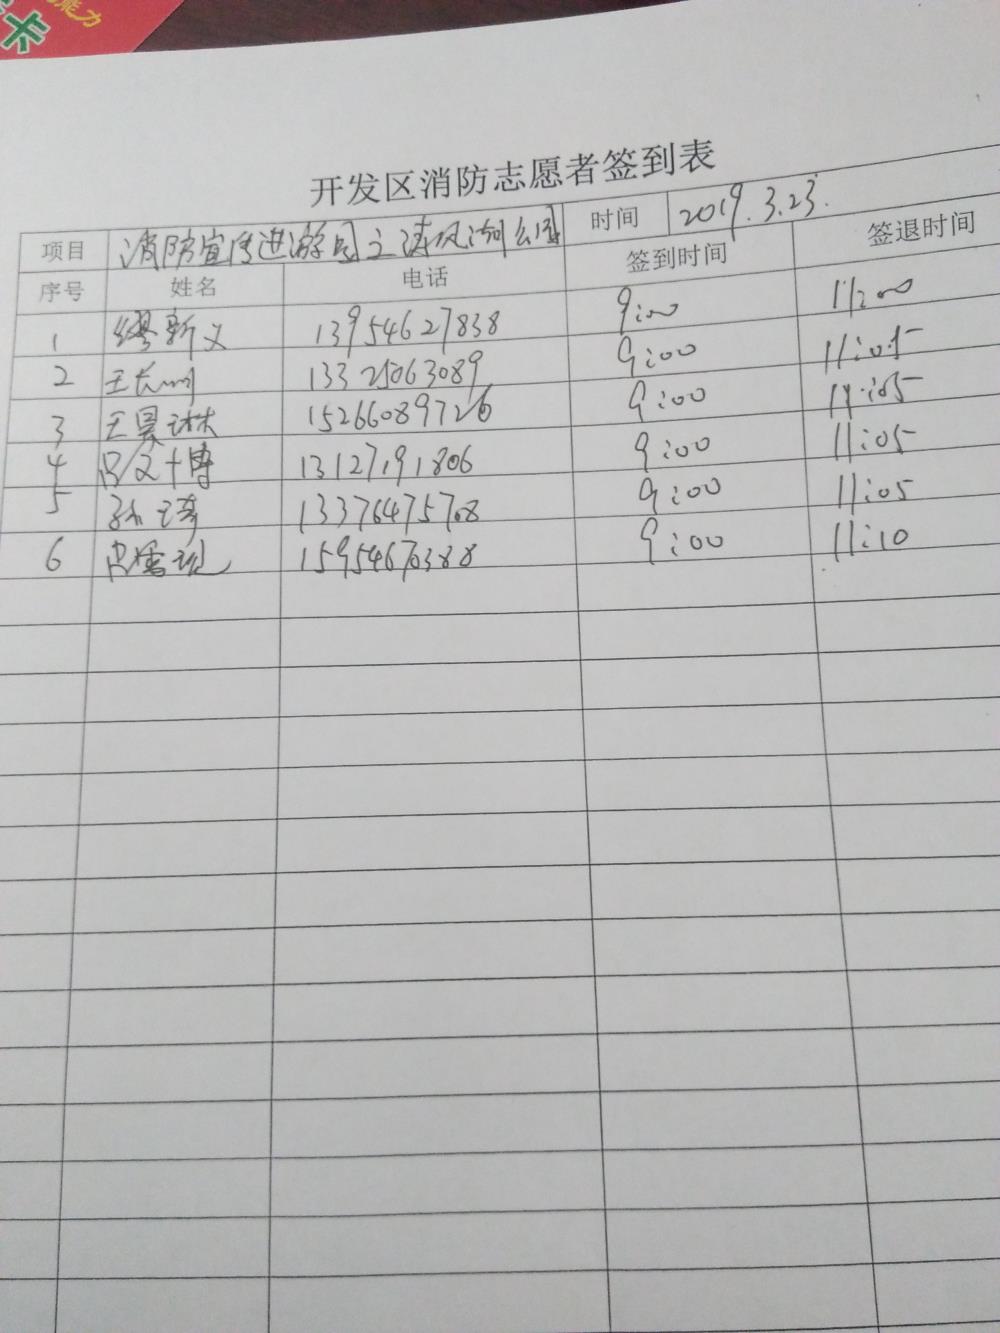 能力
卡
开发区消防志愿者签到表
项目 消防宣传进游园之清风湖公园 时间 2019.3.23.
序号 姓名 电话 签到时间 签退时间
1 缪新义 13954627838 9:00 11:00
2 王长明 13325063089 9:00 11:05
3 王昊琳 15266089726 9:00 11:05
4 吕文博 13127191806 9:00 11:05
5 孙琦 13376475708 9:00 11:05
6 15954676388 9:00 11:10